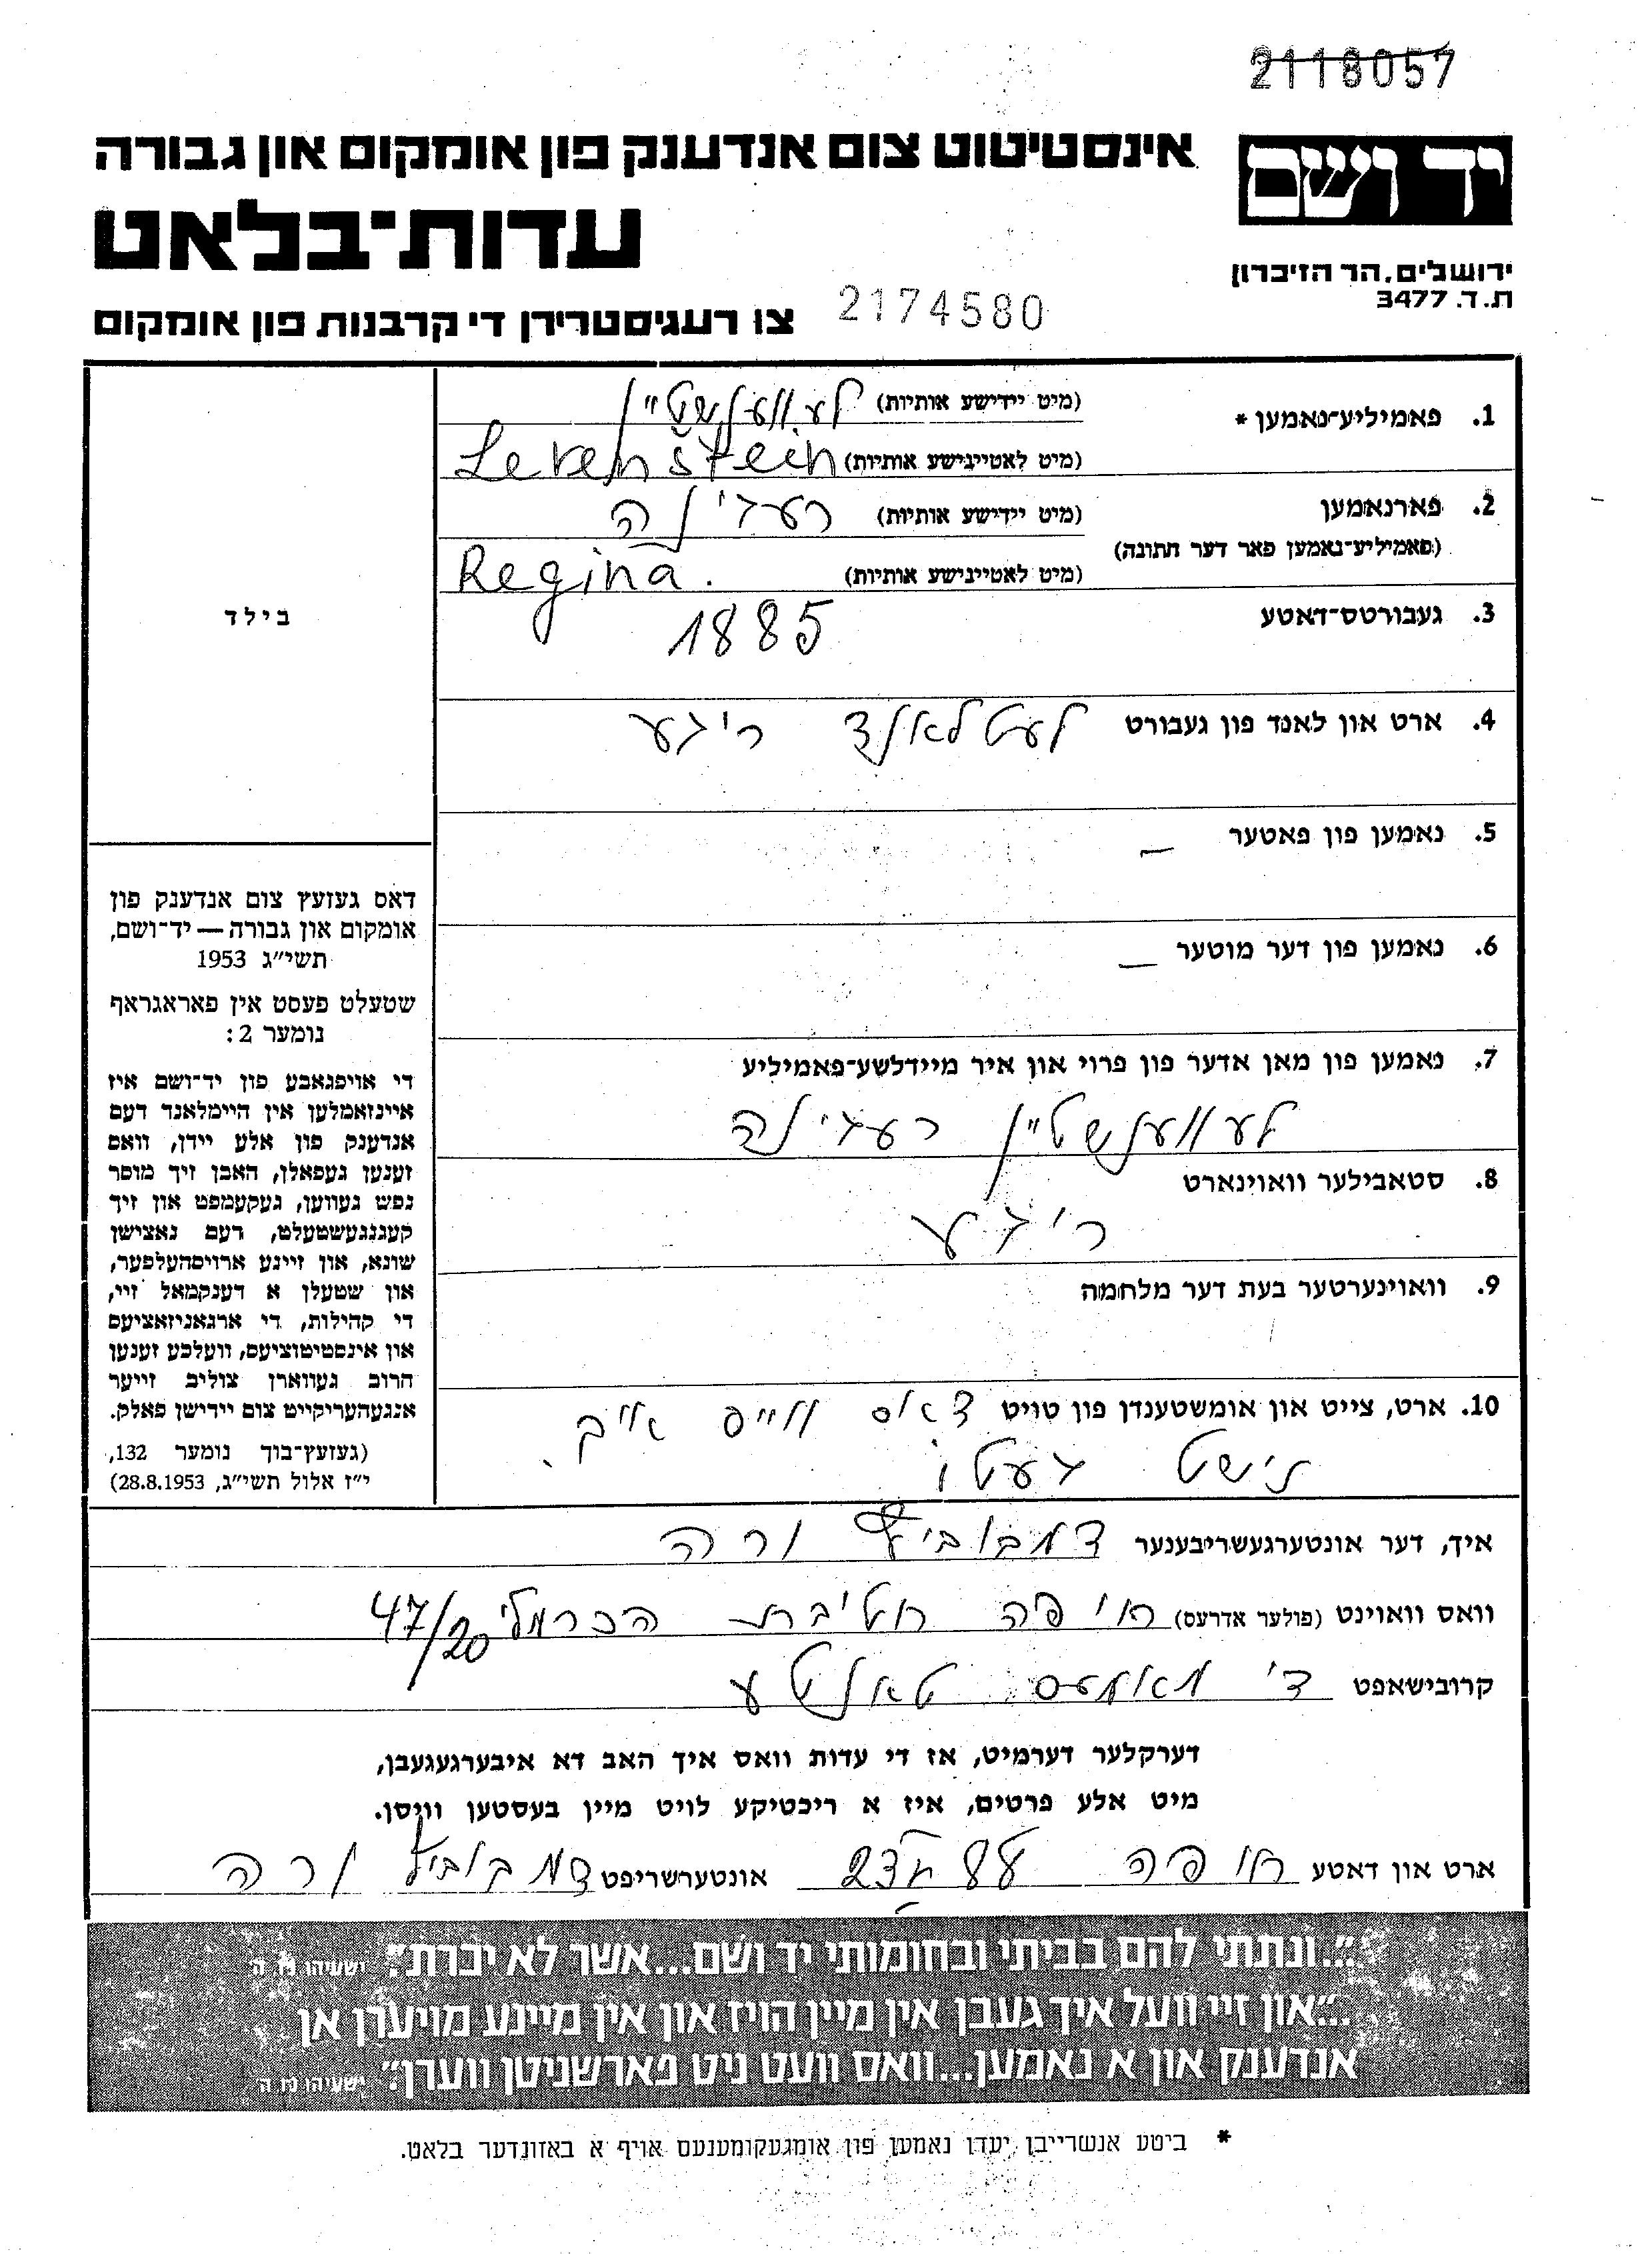 2118057
יד ושם
אינסטיטוט צום אנדענק פון אומקום און גבורה
עדות־בלאט
ירושלים, הר הזיכרון
ת.ד. 3477
צו רעגיסטרירן די קרבנות פון אומקום
2174580
1. פאמיליע־נאמען * (מיט יידישע אותיות) לעווענשטיין
(מיט לאטיינישע אותיות) Levenstein
2. פארנאמען (מיט יידישע אותיות) רעגינה
(פאמיליע־נאמען פאר דער חתונה)
(מיט לאטיינישע אותיות) Regina.
3. געבורטס־דאטע 1885
4. ארט און לאנד פון געבורט לעטלאנד ריגע
5. נאמען פון פאטער —
6. נאמען פון דער מוטער —
7. נאמען פון מאן אדער פון פרוי און איר מיידלשע־פאמיליע
לעווענשטיין רעגינה
8. סטאבילער וואוינארט
ריגע
9. וואוינערטער בעת דער מלחמה
10. ארט, צייט און אומשטענדן פון טויט דאס ווייס איך
נישט געטו
בילד
דאס געזעץ צום אנדענק פון
אומקום און גבורה — יד־ושם,
תשי״ג 1953
שטעלט פעסט אין פאראגראף
נומער 2:
די אויפגאבע פון יד־ושם איז
איינזאמלען אין היימלאנד דעם
אנדענק פון אלע יידן, וואס
זענען געפאלן, האבן זיך מוסר
נפש געווען, געקעמפט און זיך
קעגנגעשטעלט, דעם נאצישן
שונא, און זיינע ארויסהעלפער,
און שטעלן א דענקמאל זיי,
די קהילות, די ארגאניזאציעס
און אינסטיטוציעס, וועלכע זענען
חרוב געווארן צוליב זייער
אנגעהעריקייט צום יידישן פאלק.
(געזעץ־בוך נומער 132,
י״ז אלול תשי״ג, 28.8.1953)
איך, דער אונטערגעשריבענער דמבוביץ ורה
וואס וואוינט (פולער אדרעס) חיפה חטיבת הכרמלי 47/20
קרובישאפט די מאמעס טאנטע
דערקלער דערמיט, אז די עדות וואס איך האב דא איבערגעגעבן,
מיט אלע פרטים, איז א ריכטיקע לויט מיין בעסטען וויסן.
ארט און דאטע חיפה אונטערשריפט דמבוביץ ורה
״...ונתתי להם בביתי ובחומותי יד ושם...אשר לא יכרת״. ישעיהו נו ה
״...און זיי וועל איך געבן אין מיין הויז און אין מיינע מויערן אן
אנדענק און א נאמען...וואס וועט ניט פארשניטן ווערן״. ישעיהו נו ה
* ביטע אנשרייבן יעדן נאמען פון אומגעקומענעם אויף א באזונדער בלאט.